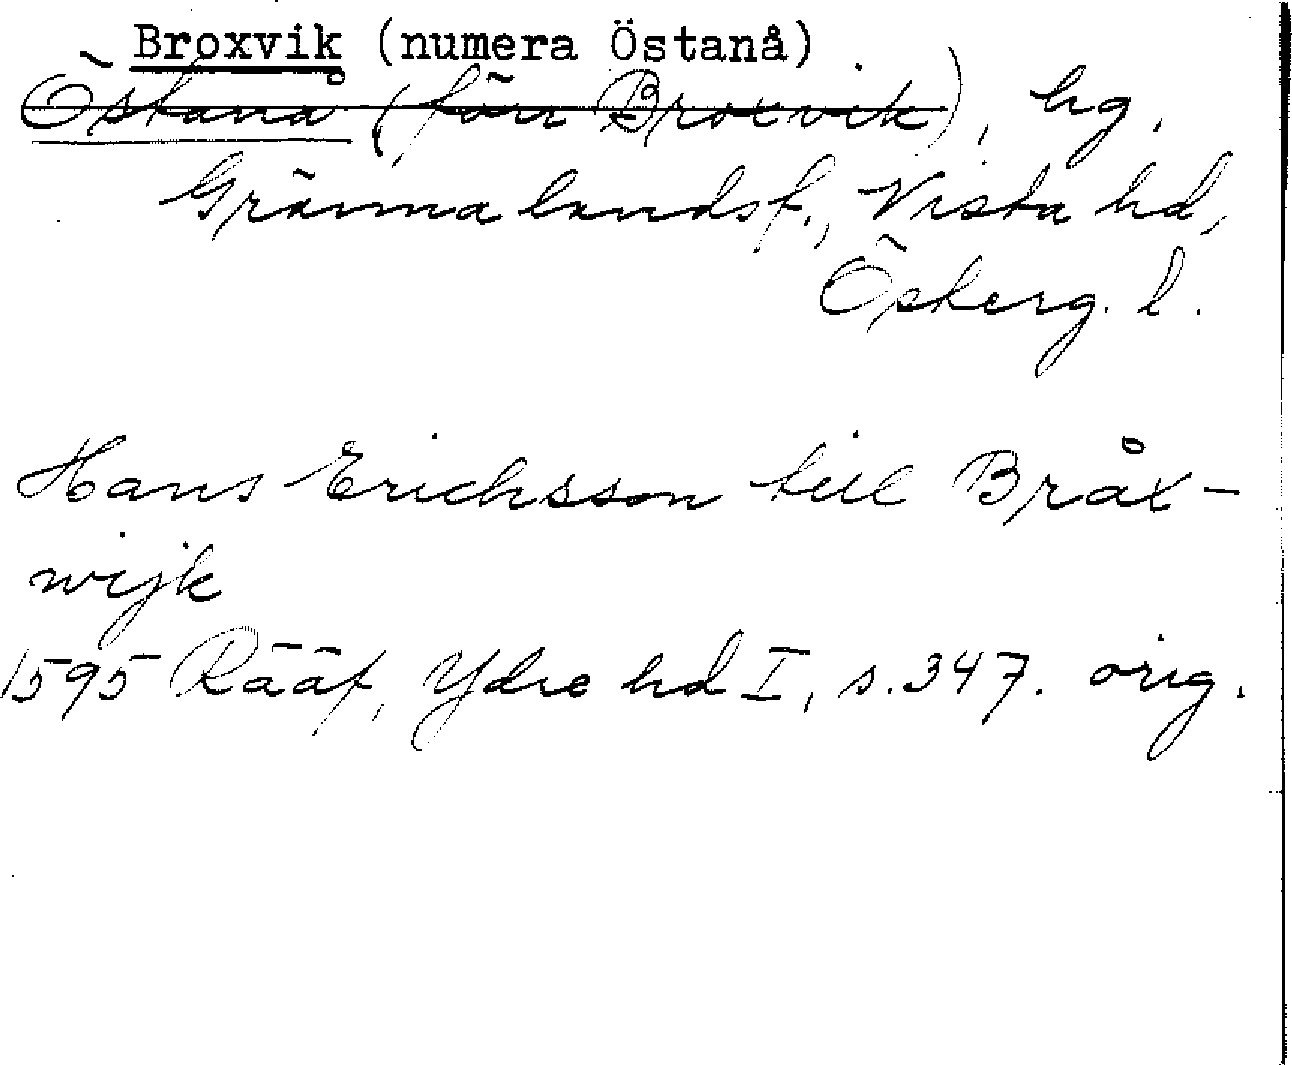 Broxvik (numera Östanå)
Östanå (förr Broxvik), hg,
Gränna landsf., Vista hd,
Österg. l.
Hans Erichsson till Bråx-
wijk
1595 Rääf, Ydre hd I, s. 347. orig.